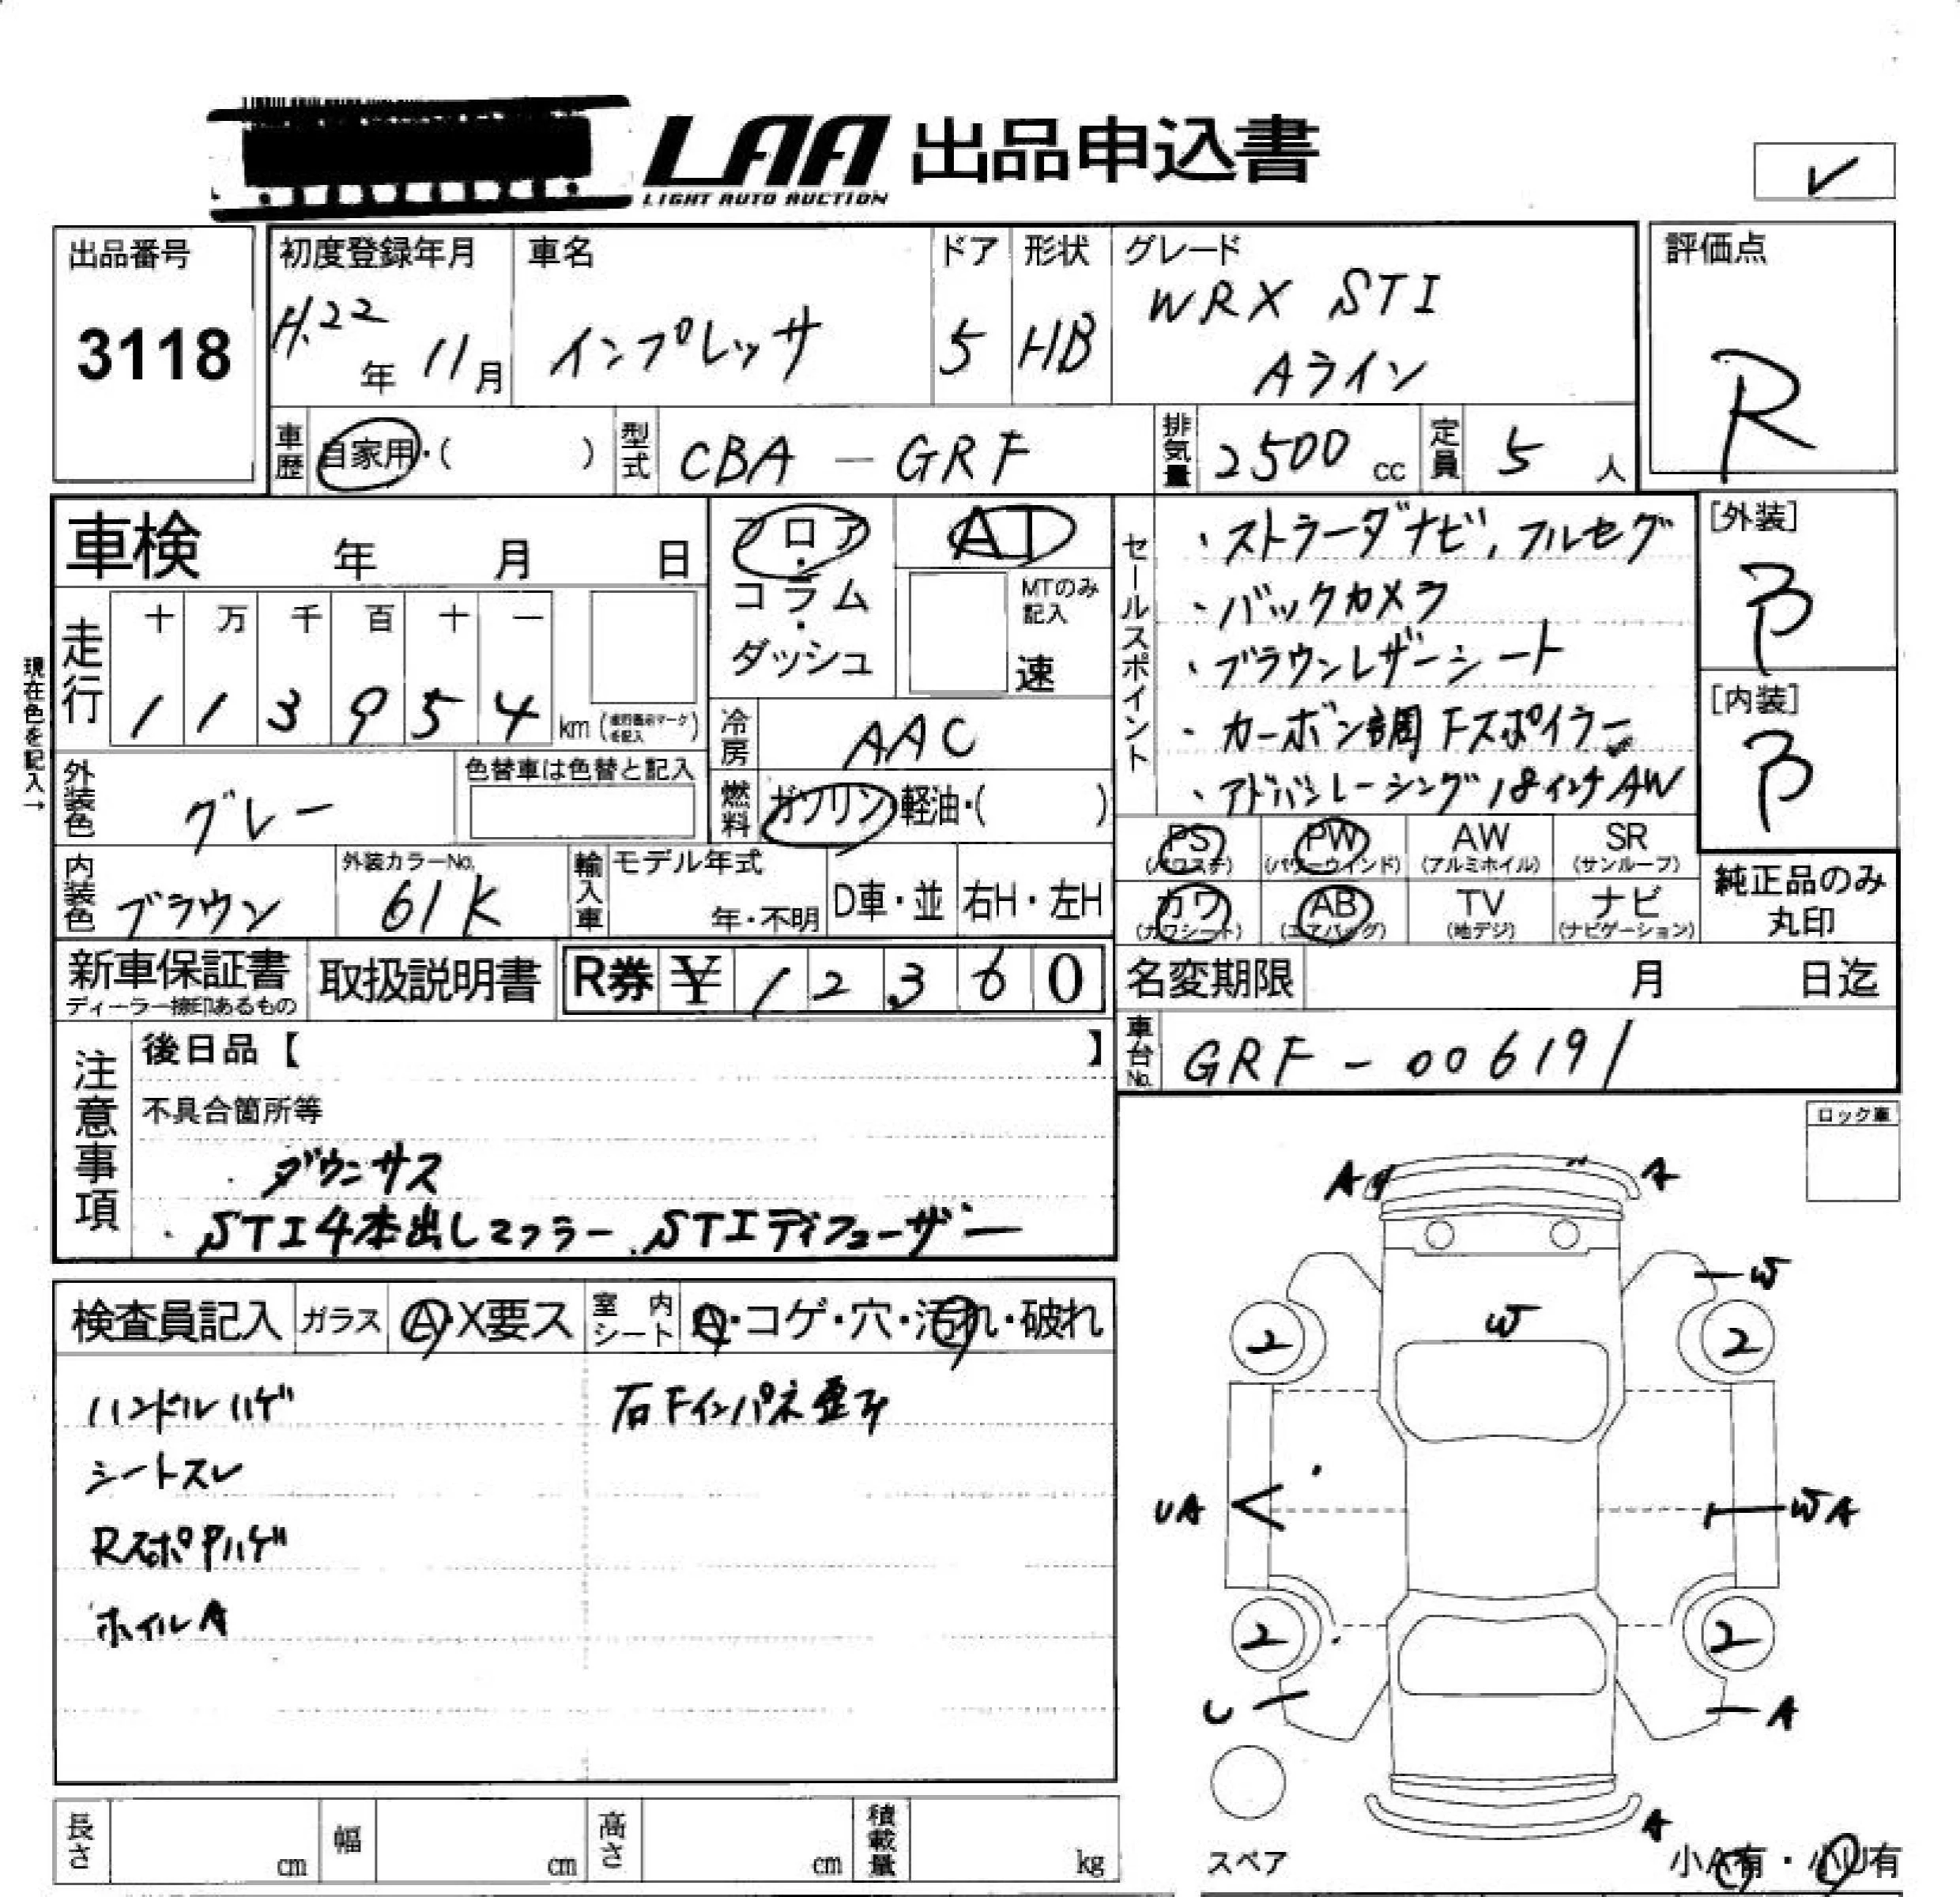 LAA 出品申込書
LIGHT AUTO AUCTION
出品番号
3118
初度登録年月
H.22年 11月
車名
インプレッサ
ドア
5
形状
HB
グレード
WRX STI
Aライン
評価点
R
車歴
自家用・( )
型式
CBA-GRF
排気量
2500 cc
定員
5 人
車検 年 月 日
フロア・コラム・ダッシュ
AT
MTのみ記入
速
セールスポイント
・ストラーダナビ, フルセグ
・バックカメラ
・ブラウンレザーシート
・カーボン調 Fスポイラー
・アドバンレーシング18インチAW
[外装]
B
[内装]
B
現在色を記入→
走行
十 万 千 百 十 一
1 1 3 9 5 4 km
冷房
AAC
外装色
グレー
色替車は色替と記入
燃料
ガソリン・軽油・( )
内装色
ブラウン
外装カラーNo.
61K
輸入車
モデル年式
年・不明
D車・並
右H・左H
PS (パワステ)
PW (パワーウインド)
AW (アルミホイル)
SR (サンルーフ)
カワ (カワシート)
AB (エアバッグ)
TV (地デジ)
ナビ (ナビゲーション)
純正品のみ
丸印
新車保証書
ディーラー捺印あるもの
取扱説明書
R券 ¥ 1 2 3 6 0
名変期限 月 日迄
車台No.
GRF-006191
注意事項
後日品【 】
不具合箇所等
・ダウンサス
・STI4本出しマフラー、STIディフューザー
ロック車
検査員記入
ガラス
A・X要ス
室内シート
A・コゲ・穴・汚れ・破れ
ハンドルハゲ
右Fインパネ歪み
シートスレ
RスポPハゲ
ホイルA
A
A
W
W
2
2
UA
WA
2
2
U
A
A
スペア
小A有・小U有
長さ cm
幅 cm
高さ cm
積載量 kg